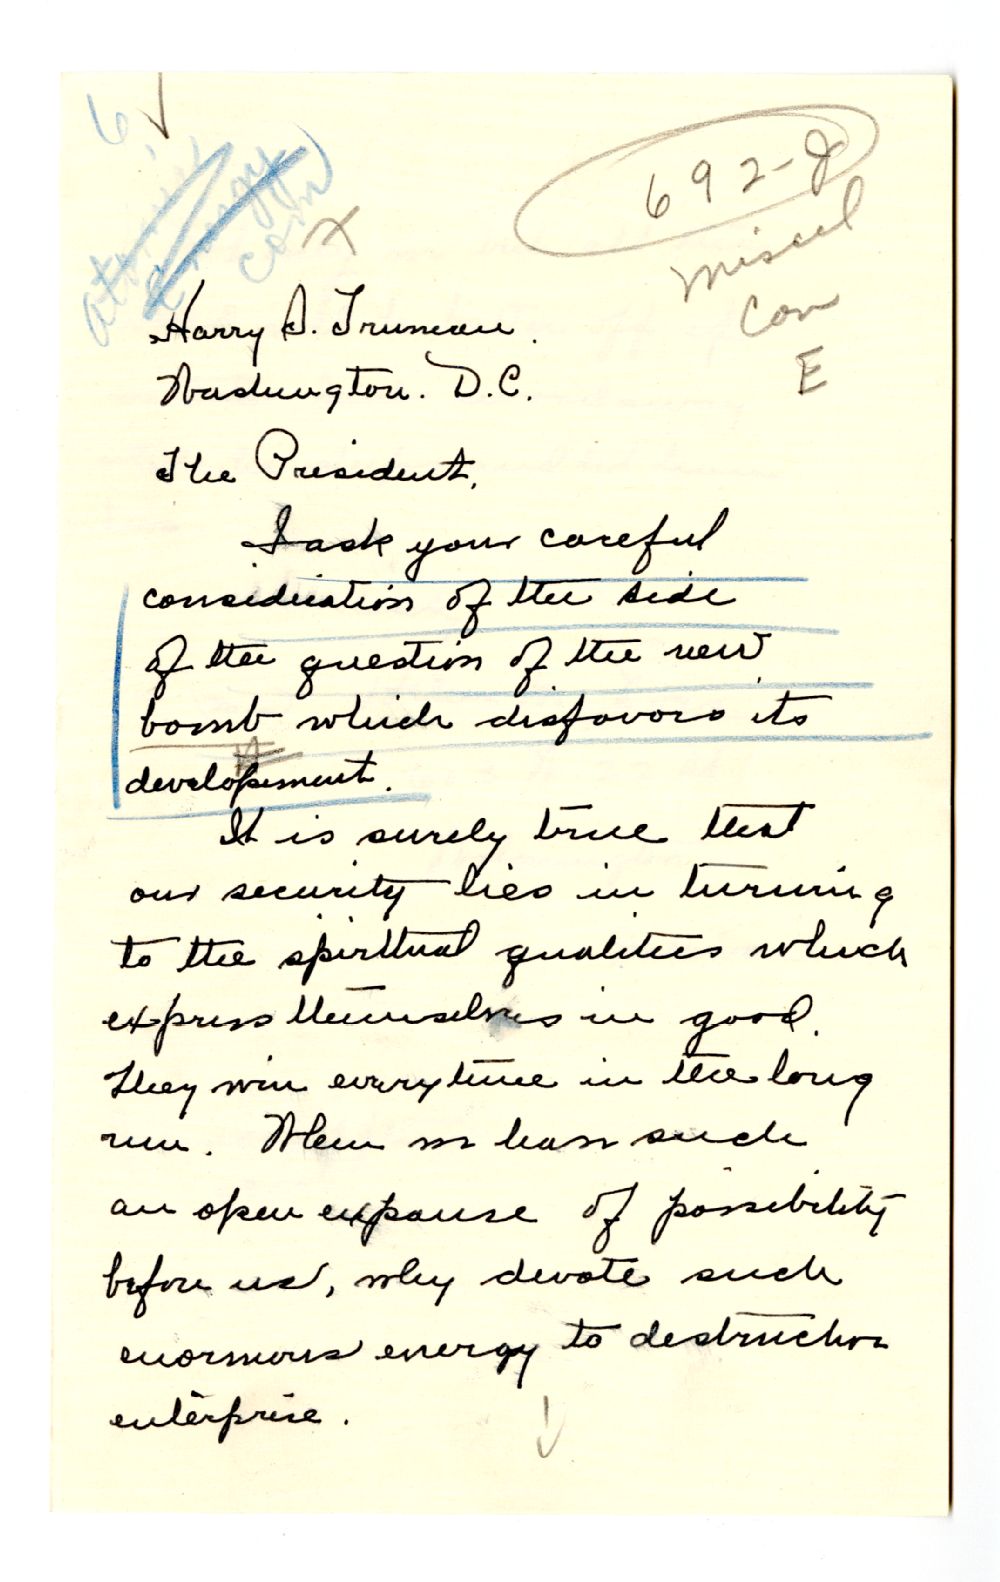 6
Atomic
Energy
Com
X
692-J
Miscel
Con
E
Harry S. Truman.
Washington. D.C.
The President.
I ask your careful
consideration of the side
of the question of the new
bomb which disfavors its
developement.
It is surely true that
our security lies in turning
to the spiritual qualities which
express themselves in good.
They win everytime in the long
run. When we have such
an open expanse of possibility
before us, why devote such
enormous energy to destruction
enterprise.